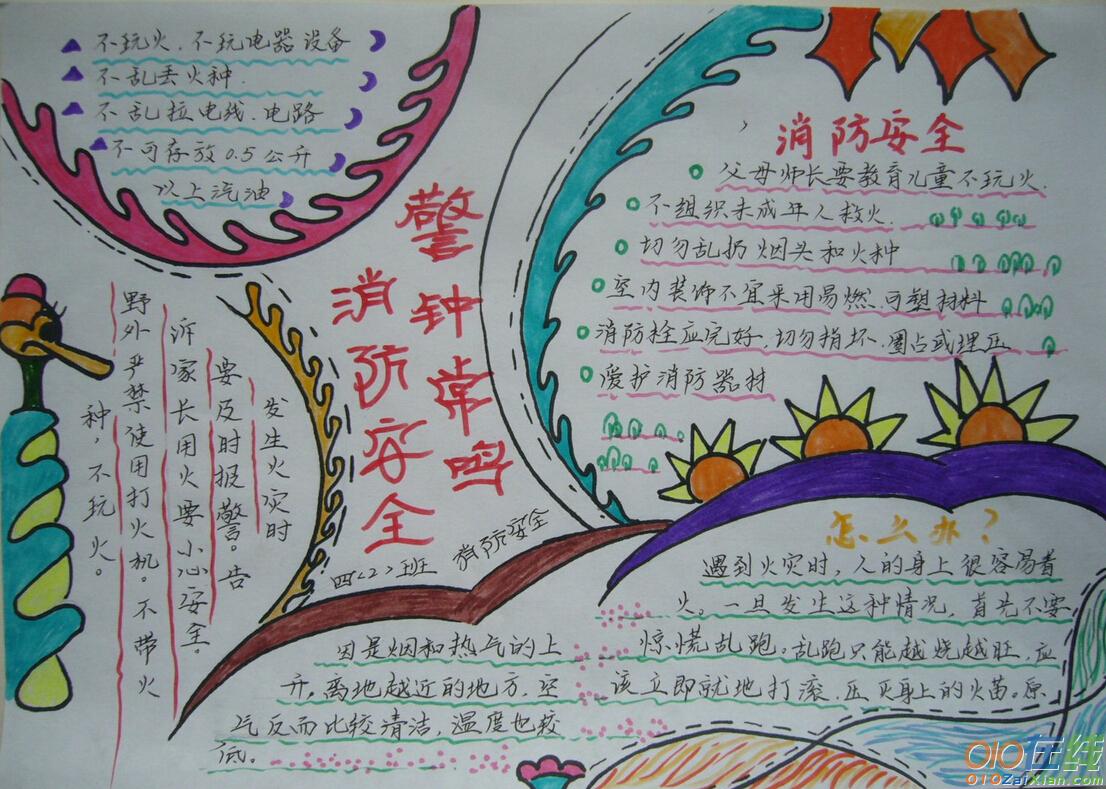 不玩火.不玩电器设备
不乱丢火种.
不乱拉电线.电路
不可存放0.5公升
以上汽油
警钟常鸣
消防安全
四<2>班 消防安全
消防安全
父母师长要教育儿童不玩火.
不组织未成年人救火.
切勿乱扔烟头和火种
室内装饰不宜采用易燃.可塑材料
消防栓应完好,切勿损坏.圈占或埋压
爱护消防器材
发生火灾时
要及时报警。告
诉家长用火要小心安全。
野外严禁使用打火机。不带火
种,不玩火。
怎么办?
遇到火灾时,人的身上很容易着
火。一旦发生这种情况,首先不要
惊慌乱跑。乱跑只能越烧越旺,应
该立即就地打滚.压灭身上的火苗。原
因是烟和热气的上
升,离地越近的地方,空
气反而比较清洁,温度也较
低。
010在线
010ZaiXian.com